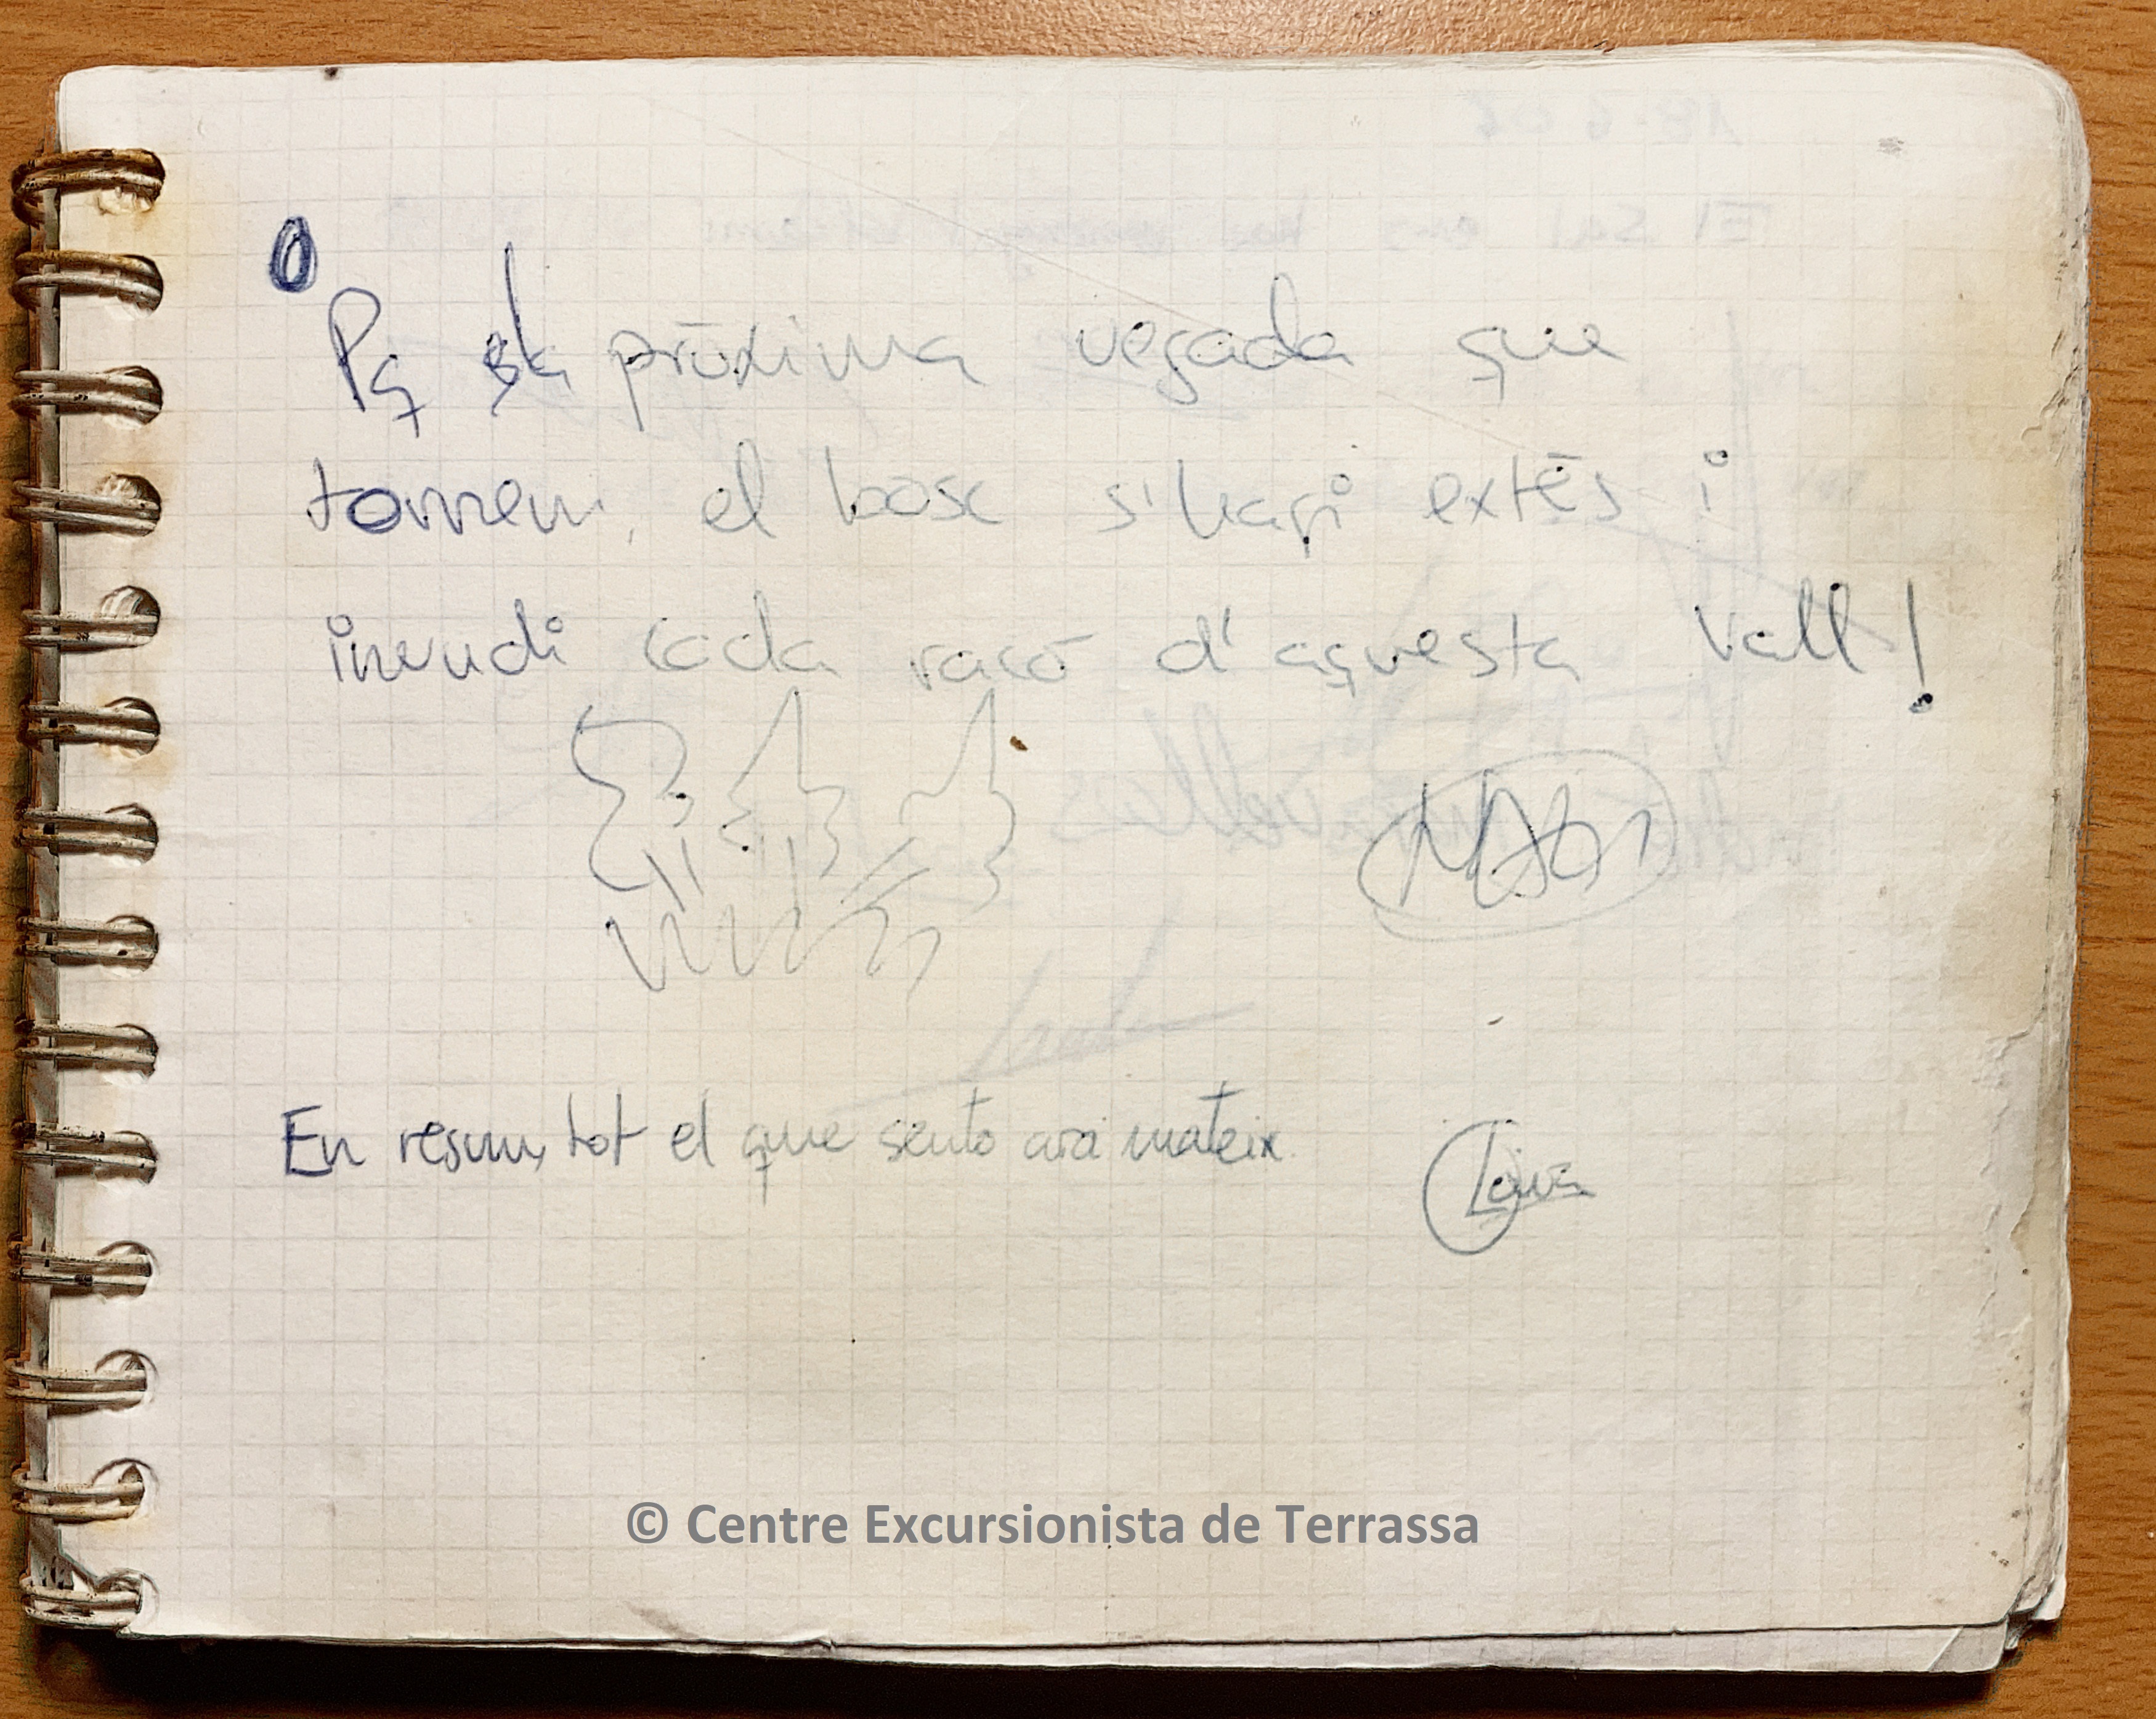 Pq la pròxima vegada que
tornem, el bosc s'hagi extès i
inundi cada racó d'aquesta Vall!
En resum, tot el que sento ara mateix.
Laura
© Centre Excursionista de Terrassa